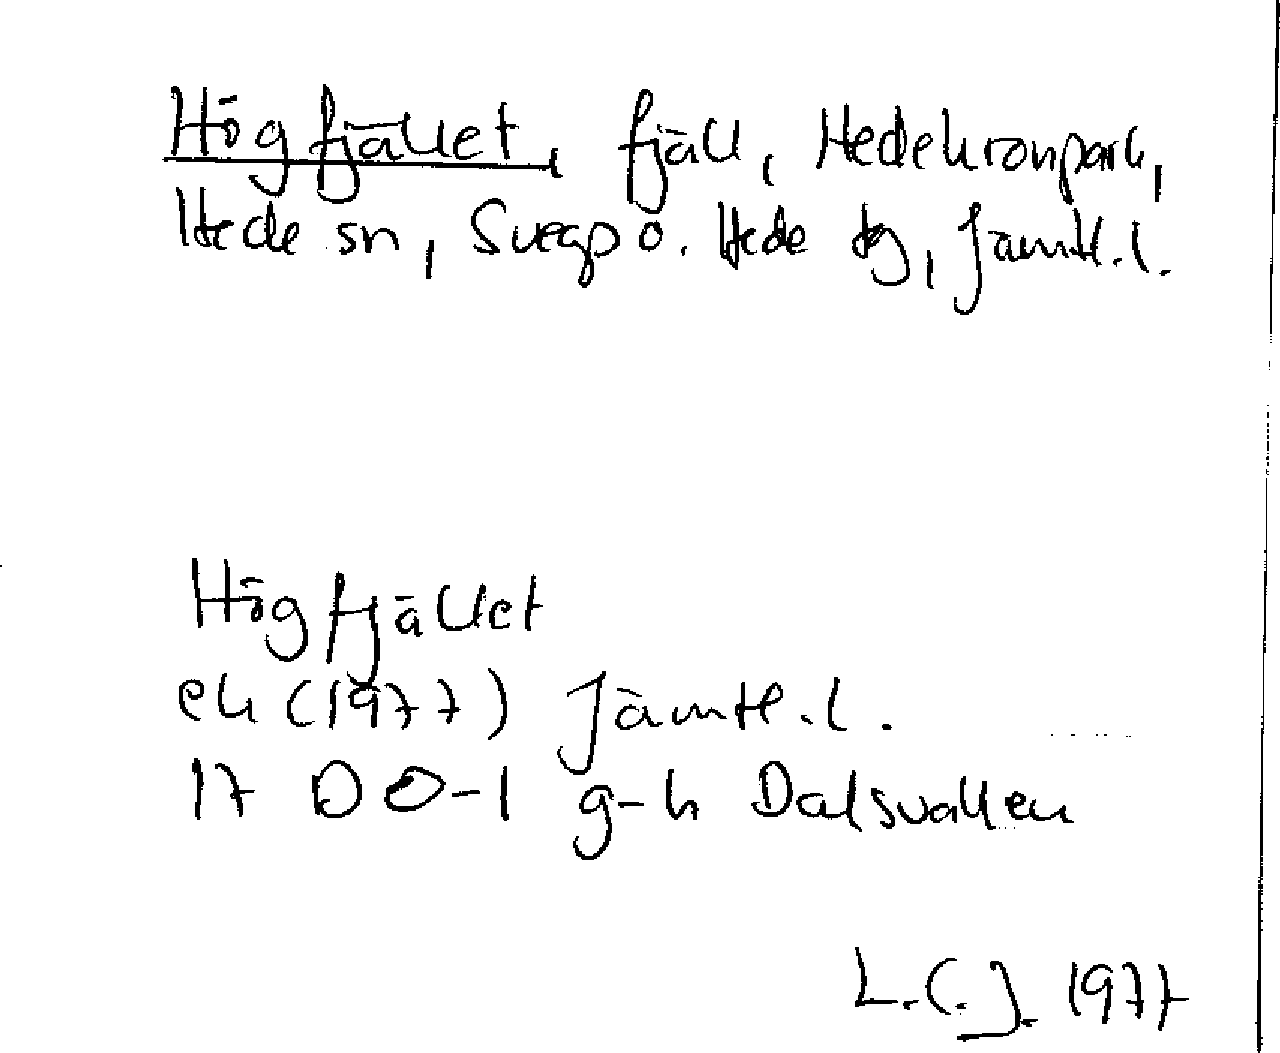 Högfjället, fjäll, Hede kronpark,
Hede sn, Svegs po. Hede tg, Jämtl.l.
Högfjället
ek (1977) Jämtl.l.
17 D 0-1 g-h Dalsvallen
L.C.J. 1977